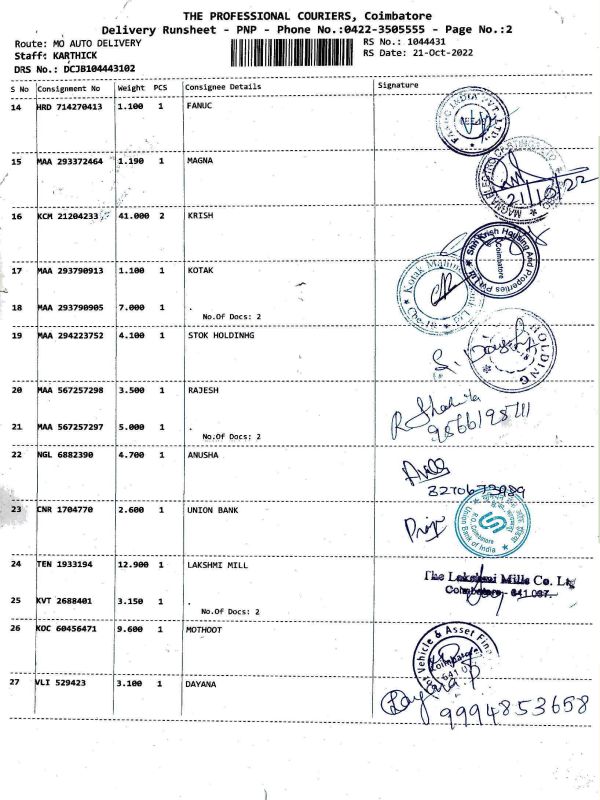 THE PROFESSIONAL COURIERS, Coimbatore
Delivery Runsheet - PNP - Phone No.:0422-3505555 - Page No.:2
Route: MO AUTO DELIVERY RS No.: 1044431
Staff: KARTHICK RS Date: 21-Oct-2022
DRS No.: DCJB104443102
S No Consignment No Weight PCS Consignee Details Signature
14 HRD 714270413 1.100 1 FANUC
FANUC INDIA PVT. LTD.
15 MAA 293372464 1.190 1 MAGNA
MAGNA ELECTRO CASTINGS LTD
21/10/22
16 KCM 21204233 41.000 2 KRISH
Shri Krish Housing And Properties Pvt Ltd
Coimbatore
17 MAA 293790913 1.100 1 KOTAK
Kotak Mahindra Bank Ltd
Cbe-18
18 MAA 293790905 7.000 1 .
No.Of Docs: 2
19 MAA 294223752 4.100 1 STOK HOLDINHG
HOLDING
20 MAA 567257298 3.500 1 RAJESH
R
21 MAA 567257297 5.000 1 .
No.Of Docs: 2
22 NGL 6882390 4.700 1 ANUSHA
23 CNR 1704770 2.600 1 UNION BANK
Union Bank of India
24 TEN 1933194 12.900 1 LAKSHMI MILL
The Lakshmi Mills Co. Ltd
Coimbatore - 641 037.
25 KVT 2688401 3.150 1 .
No.Of Docs: 2
26 KOC 60456471 9.600 1 MOTHOOT
Vehicle & Asset Fin
Coimbatore
27 VLI 529423 3.100 1 DAYANA
Dayana
9994853658